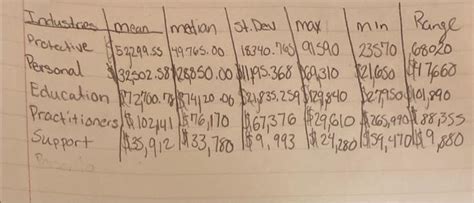 Industries mean median St.Dev max min Range
Protective $52299.55 49765.00 18340.765 91590 23570 68020
Personal $32502.58 $28050.00 $11195.368 $69,310 $21,650 $47660
Education $72700.78 $74120.00 $21,835.259 $129,840 $27,950 $101,890
Practitioners $102,141 $76,170 $67,376 $29,610 $265,990 $88,355
Support $35,912 $33,780 $9,993 $24,280 $59,470 $9,880